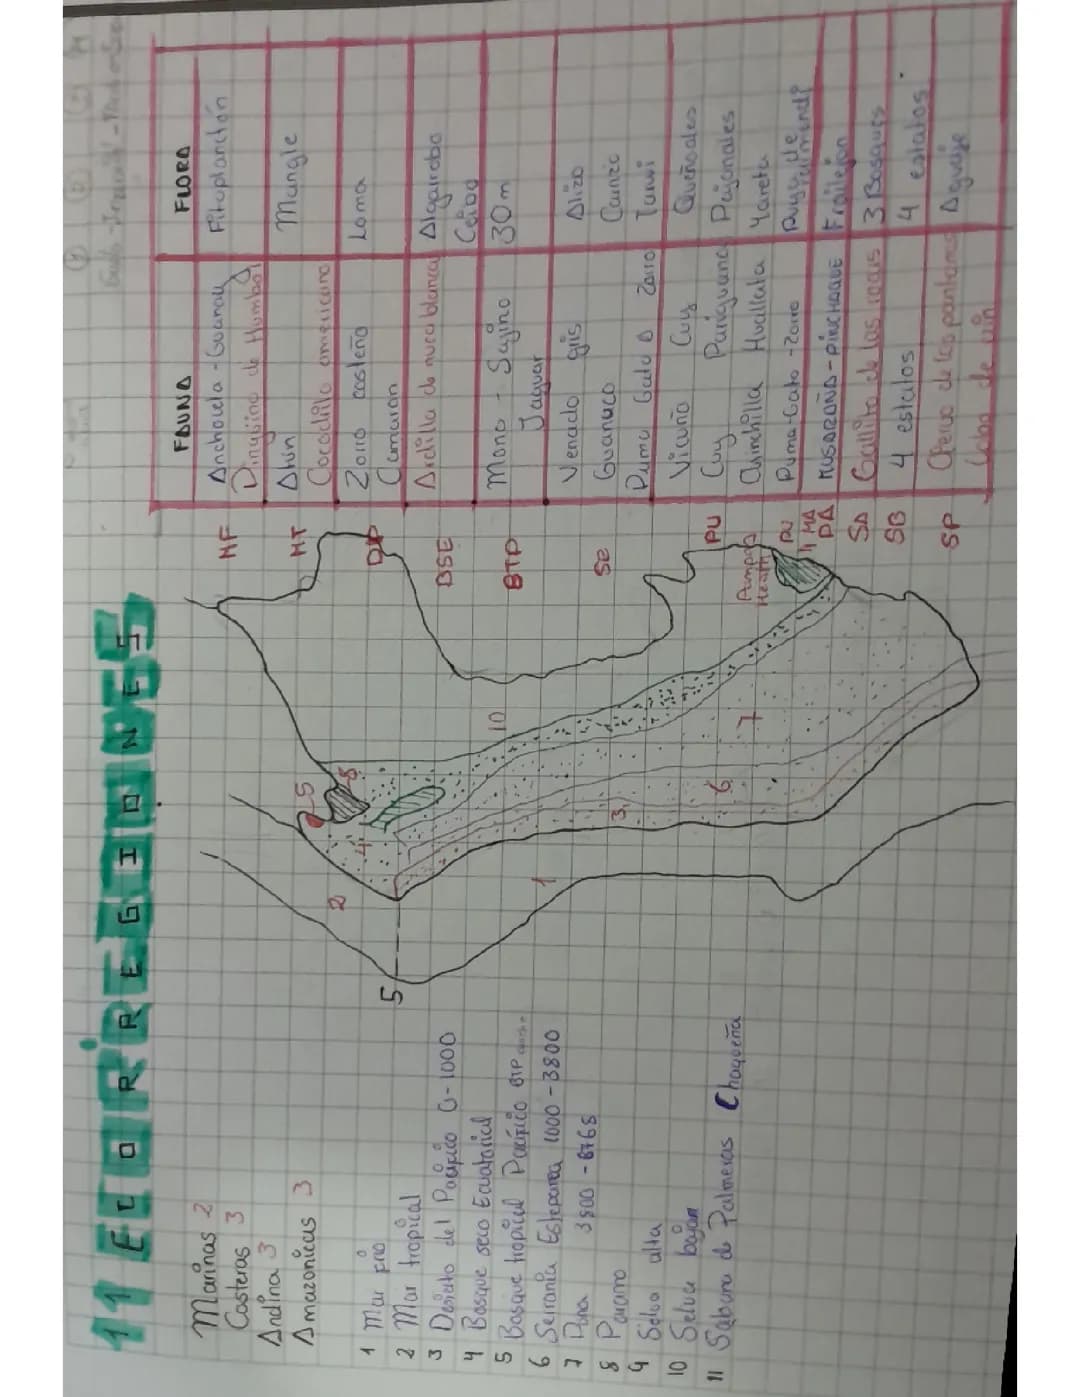 11 ECORREGIONES
Marinas 2
Costeras 3
Andina 3
Amazonicas 3
1 Mar frio
2 Mar tropical
3 Desierto del Pacifico 0-1000
4 Bosque seco Ecuatorial
5 Bosque tropical Pacifico BTP
6 Serrania Esteparea 1000-3800
7 Puna 3800-6768
8 Paramo
9 Selva alta
10 Selva bajan
11 Sabana de Palmeras Chaqueña
5
2
25
8
4
10
1
3
6
7
FAUNA FLORA
MF Anchoveta - Guanay Fitoplanctón
Pinguino de Humbol
MT Atun Mangle
Cocodrilo americano
DP Zorro costeño Loma
Camaron
BSE Ardilla de nuca blanca Algarrobo
Ceibo
BTP Mono - Sajino 30m
Jaguar
SE Venado gris Alizo
Guanaco Carrizo
Puma Gato A Zorro Tarwi
PU Vicuña Cuy Queñoales
Cuy Pariguana Pajonales
Pampas Chinchilla Huallata Yareta
Heath
PU Puma-Gato-Zorro Puya de Raimondi
PA MUSARAÑA-PINCHAQUE Frailejon
SA Gallito de las rocas 3 Bosques
SB 4 estatos 4 estatos
SP Ciervo de los pantanos Aguaje
Lobo de crin